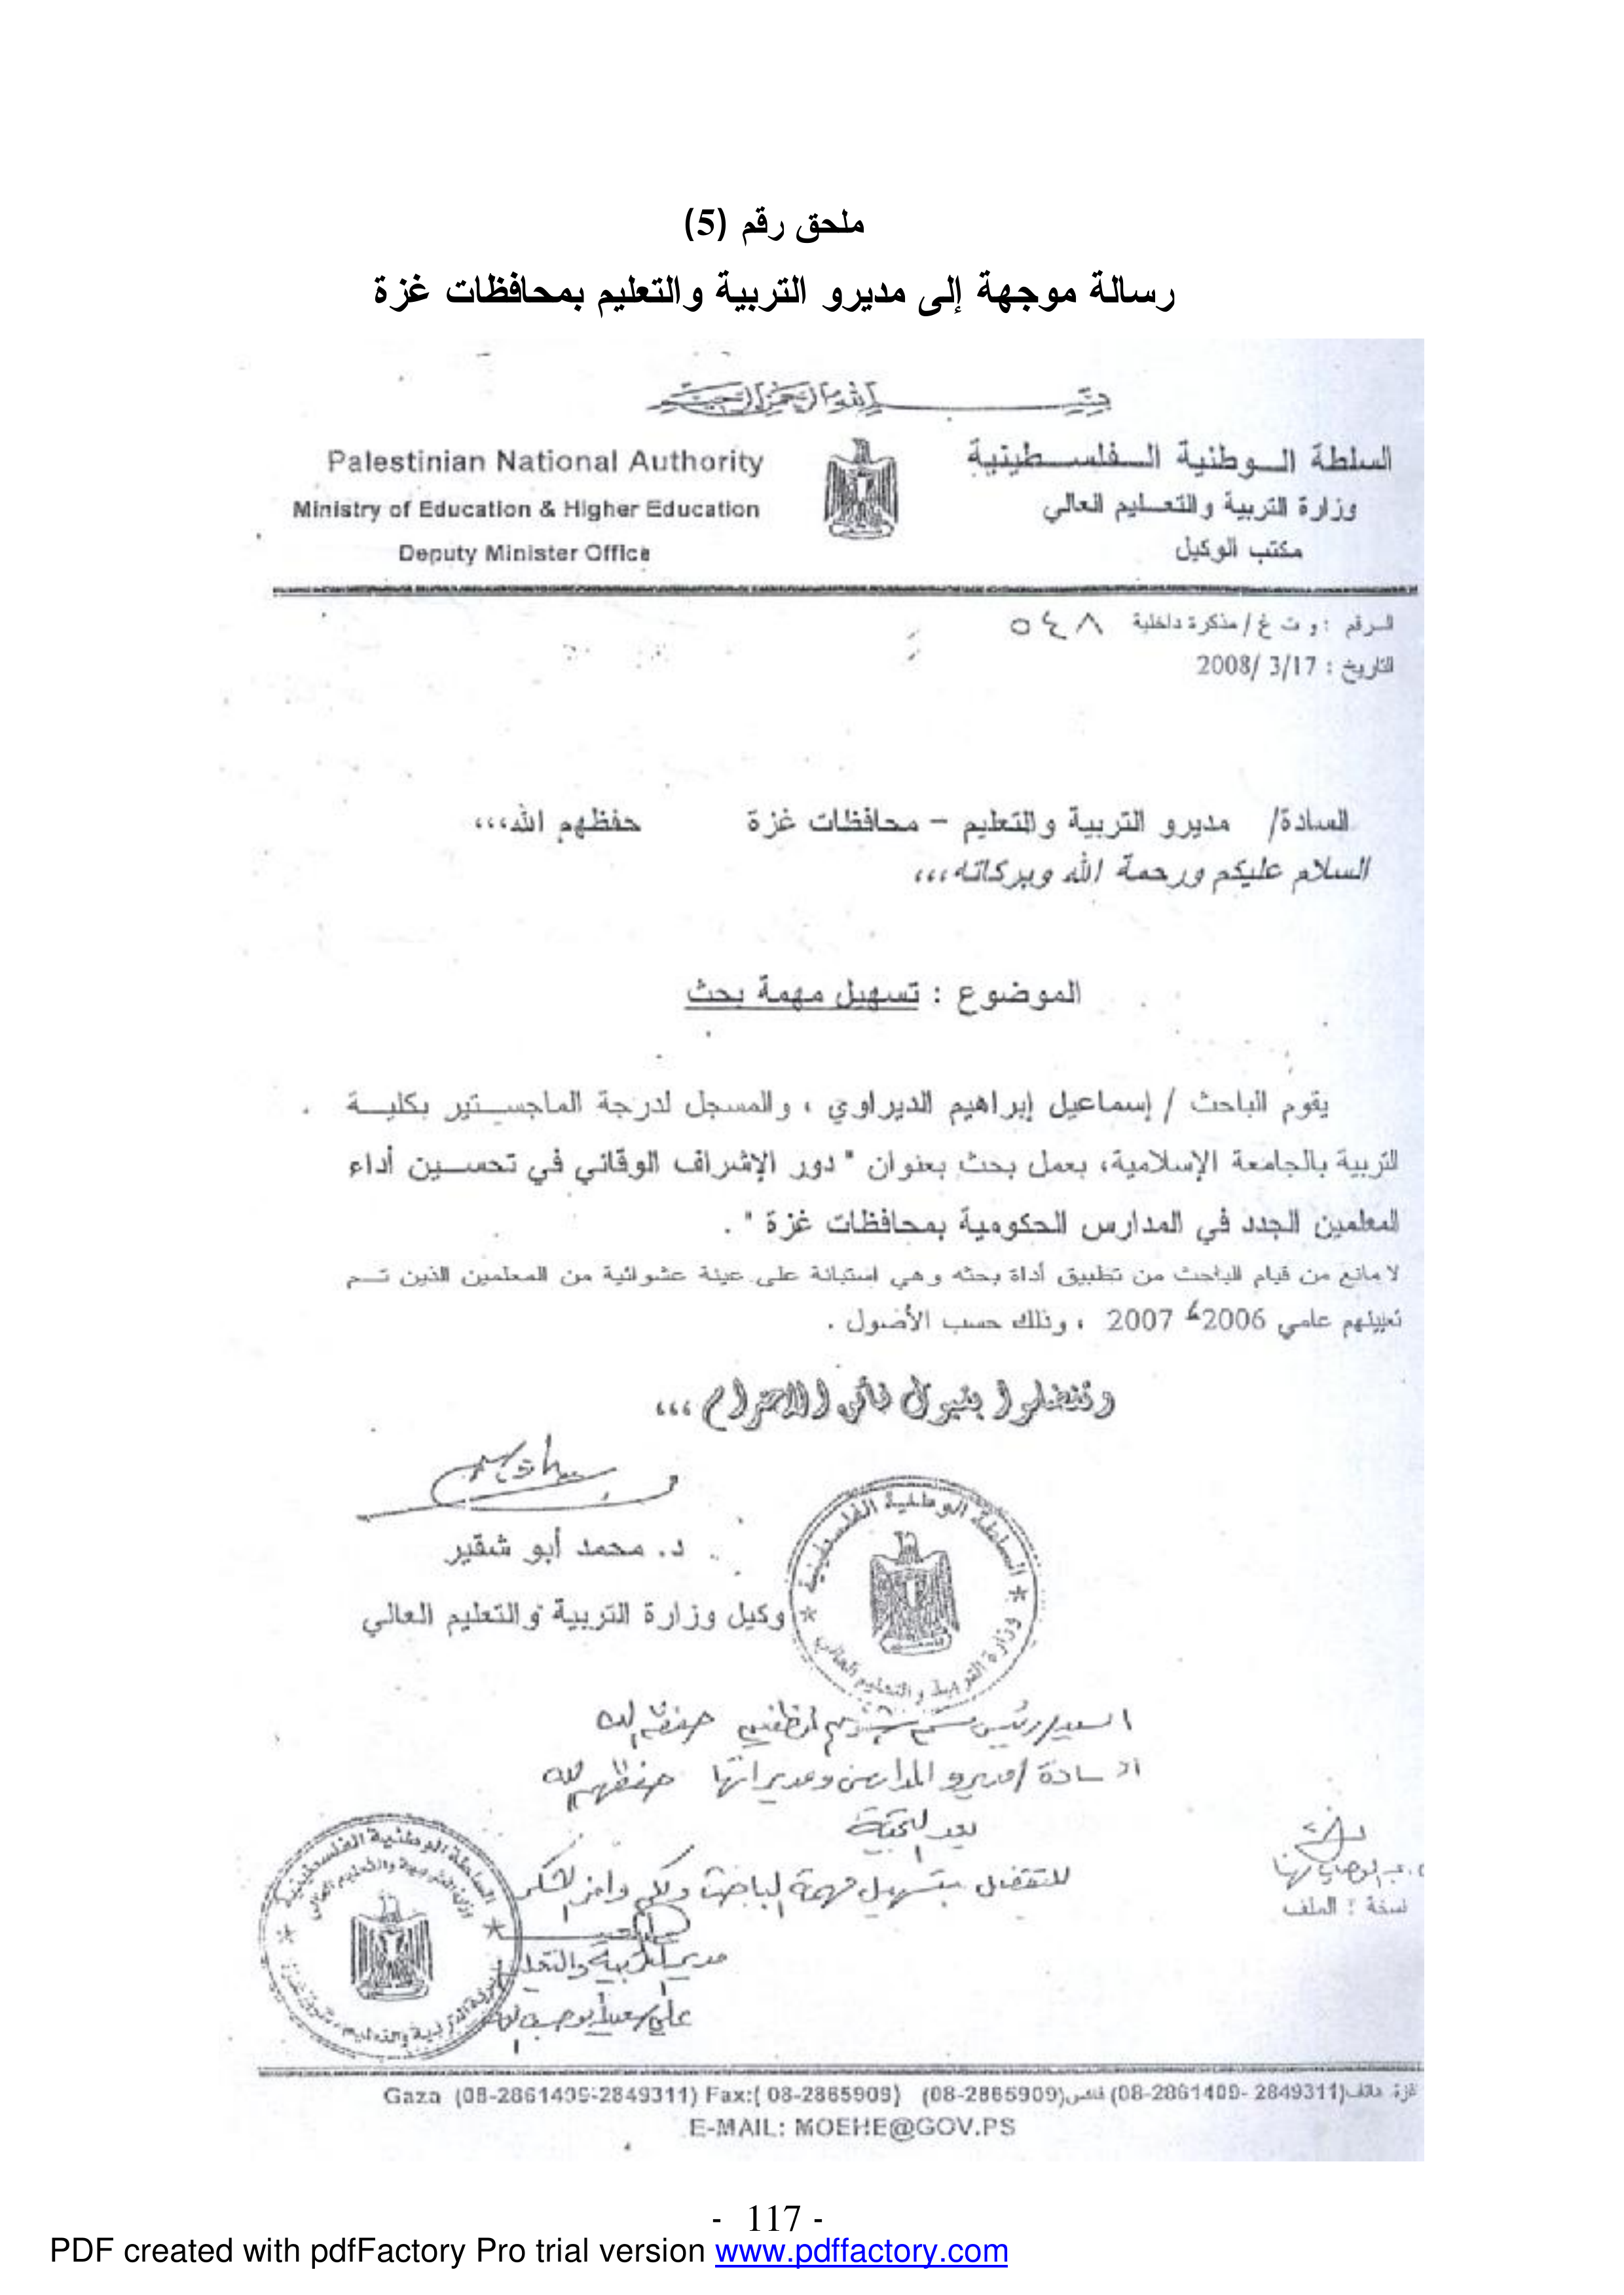 ملحق رقم (5)
رسالة موجهة إلى مديرو التربية والتعليم بمحافظات غزة
بسم الله الرحمن الرحيم
السلطة الوطنية الفلسطينية
وزارة التربية والتعليم العالي
مكتب الوكيل
Palestinian National Authority
Ministry of Education & Higher Education
Deputy Minister Office
الرقم : و ت غ / مذكرة داخلية ٥٤٨
التاريخ : 2008/ 3/17
السادة/ مديرو التربية والتعليم – محافظات غزة حفظهم الله،،،
السلام عليكم ورحمة الله وبركاته،،،
الموضوع : تسهيل مهمة بحث
يقوم الباحث / إسماعيل إبراهيم الديراوي ، والمسجل لدرجة الماجستير بكلية
التربية بالجامعة الإسلامية، بعمل بحث بعنوان " دور الإشراف الوقائي في تحسين أداء
المعلمين الجدد في المدارس الحكومية بمحافظات غزة " .
لا مانع من قيام الباحث من تطبيق أداة بحثه وهي استبانة على عينة عشوائية من المعلمين الذين تم
تعيينهم عامي 2006 2007 ، وذلك حسب الأصول .
وتفضلوا بقبول فائق الاحترام ،،،
د. محمد أبو شقير
وكيل وزارة التربية والتعليم العالي
السلطة الوطنية الفلسطينية
وزارة التربية والتعليم العالي
السيد/ رئيس قسم حفظه الله
السادة / مديرو المدارس ومديراتها حفظهم الله
بعد التحية
للتفضل بتسهيل مهمة الباحث ولكم وافر الشكر
مدير التربية والتعليم
علي سعيد أبو حسب الله
السلطة الوطنية الفلسطينية
وزارة التربية والتعليم العالي
نسخة : الملف
Gaza (08-2861409-2849311) Fax:( 08-2865909) غزة هاتف(08-2861409- 2849311) فاكس(08-2865909)
E-MAIL: MOEHE@GOV.PS
- 117 -
PDF created with pdfFactory Pro trial version www.pdffactory.com